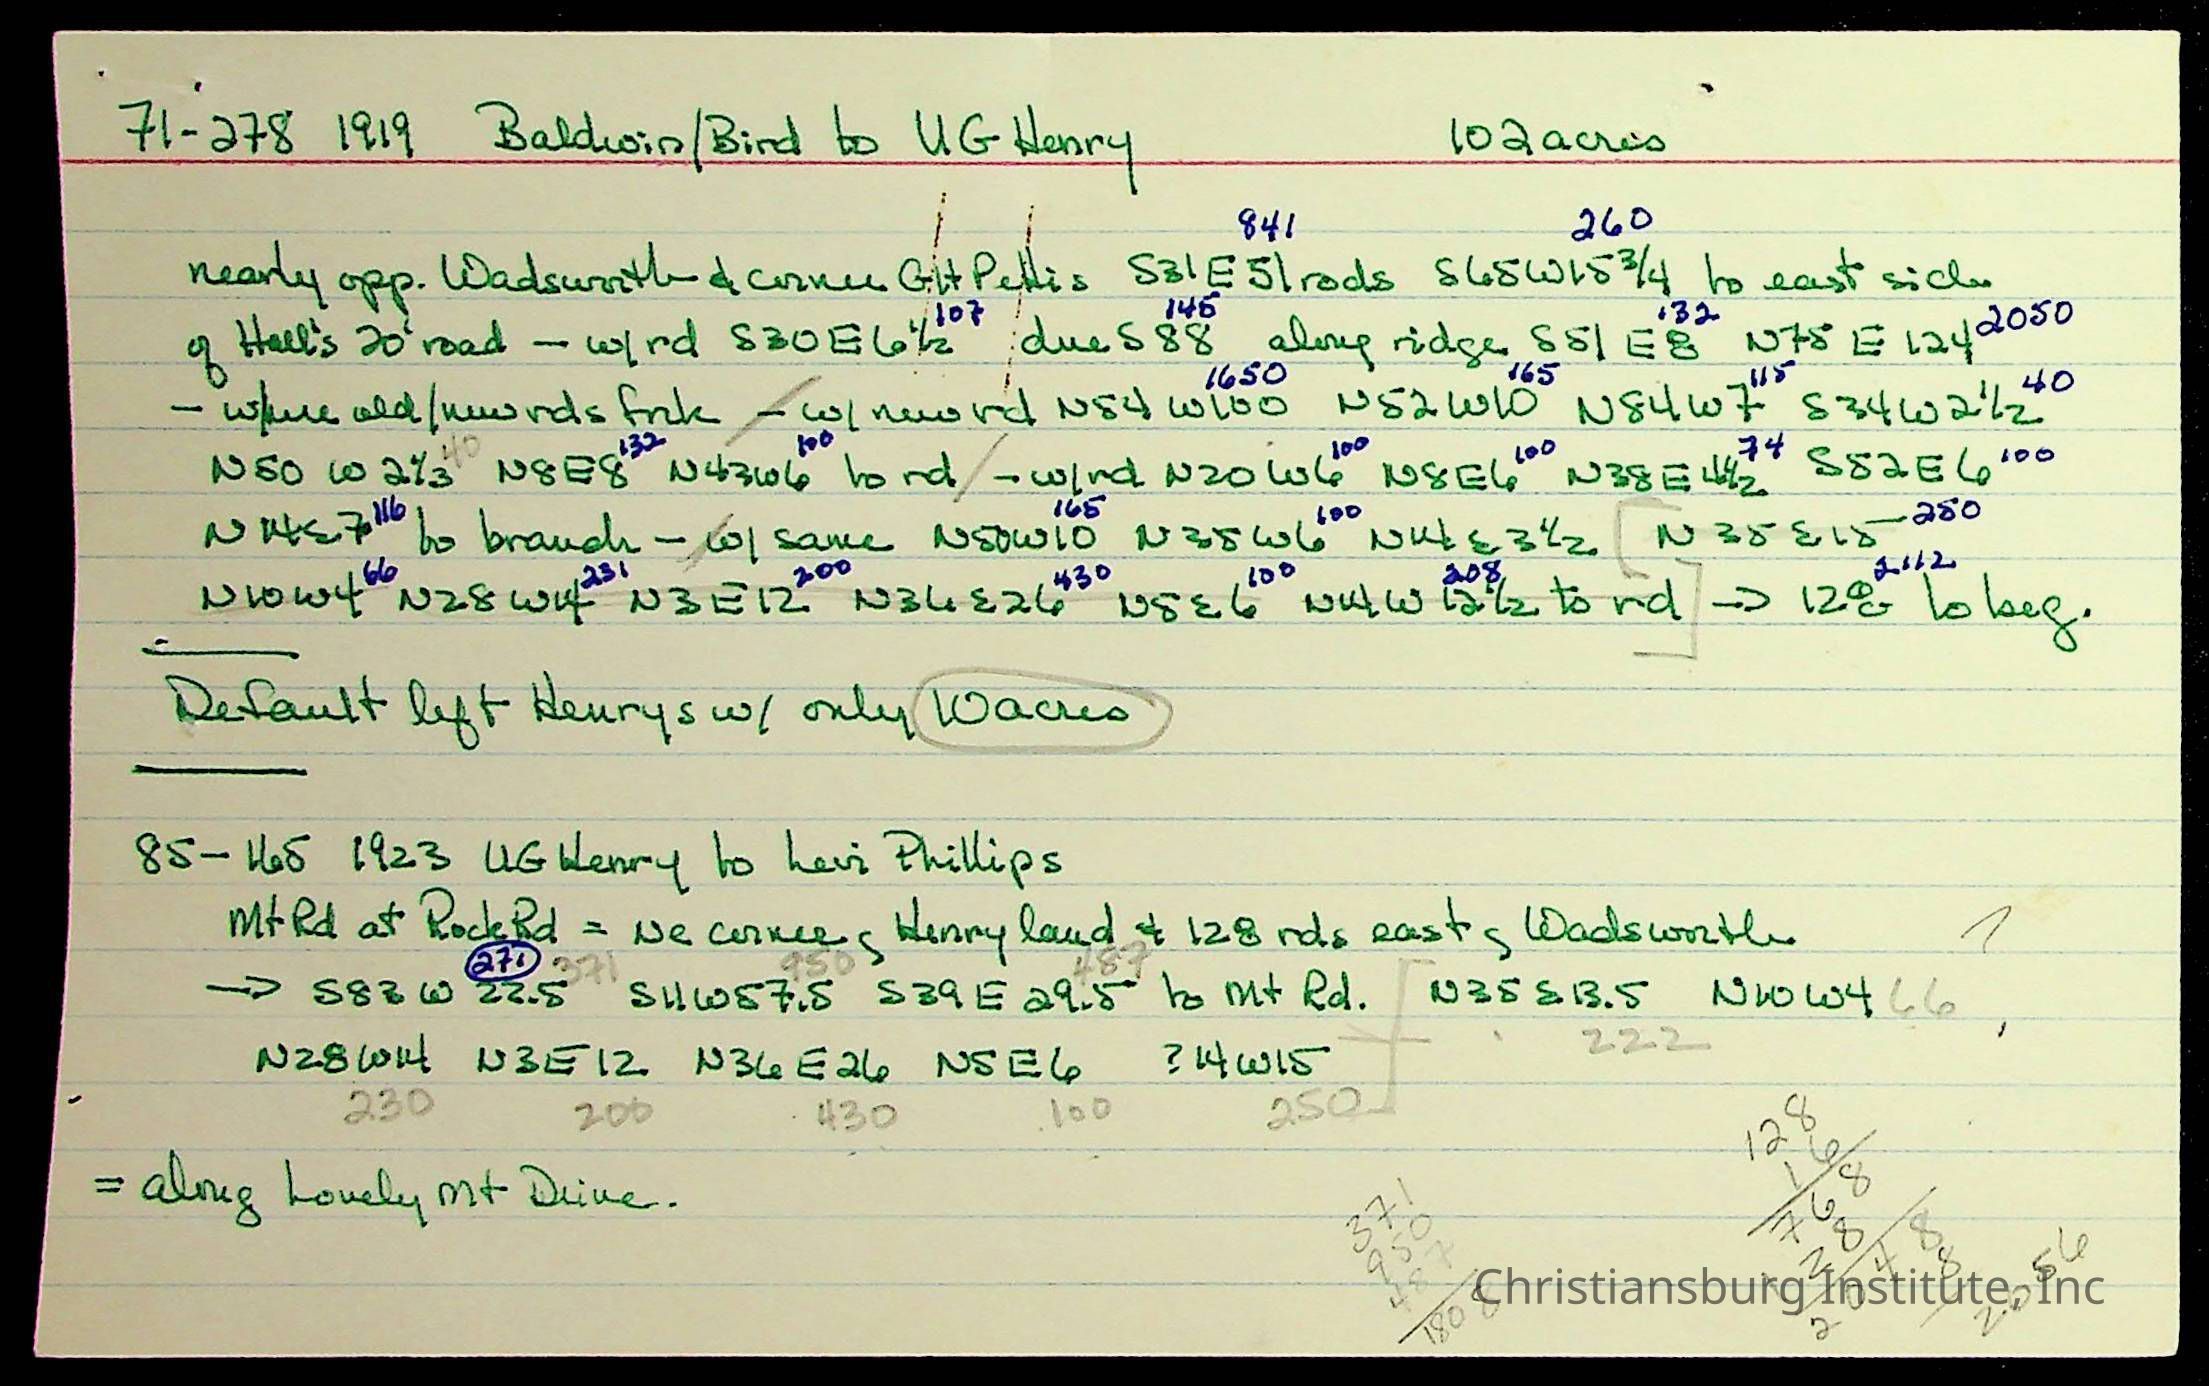 71-278 1919 Baldwin/Bird to UG Henry 102 acres
841 260
nearly opp. Wadsworth & corner GH Pettis S31E 51 rods S65W15 3/4 to east side
107 145 132 2050
of Hall's 20' road – w/rd S30E6½ due S 88 along ridge S51E8 N75E124
1650 165 115 40
– w/ old/new rds fork – w/ new rd N54W100 N52W10 N84W7 S34W2½
40 132 100 100 100 74 100
N50W2⅓ N8E8 N43W6 to rd – w/rd N20W6 N8E6 N38E4½ S52E6
116 165 100 250
N14E7 to branch – w/ same N50W10 N35W6 N14E3½ [N35E15
66 231 200 430 100 208 2112
N10W4 N28W14 N3E12 N36E26 N5E6 N14W12½ to rd] → 128 to beg.
Default left Henrys w/ only 10 acres
85-165 1923 UG Henry to Levi Phillips
Mt Rd at Rock Rd = NE corner of Henry land & 128 rds east of Wadsworth
271 371 950 487
→ S83W 22.5 S11W57.5 S39E 29.5 to Mt Rd. [N35E13.5 N10W4 66
222
N28W14 N3E12 N36E26 N5E6 ?14W15]
230 200 430 100 250
= along Lovely Mt Drive.
128
16
768
128
2048
8
2056
371
950
487
1808
Christiansburg Institute, Inc